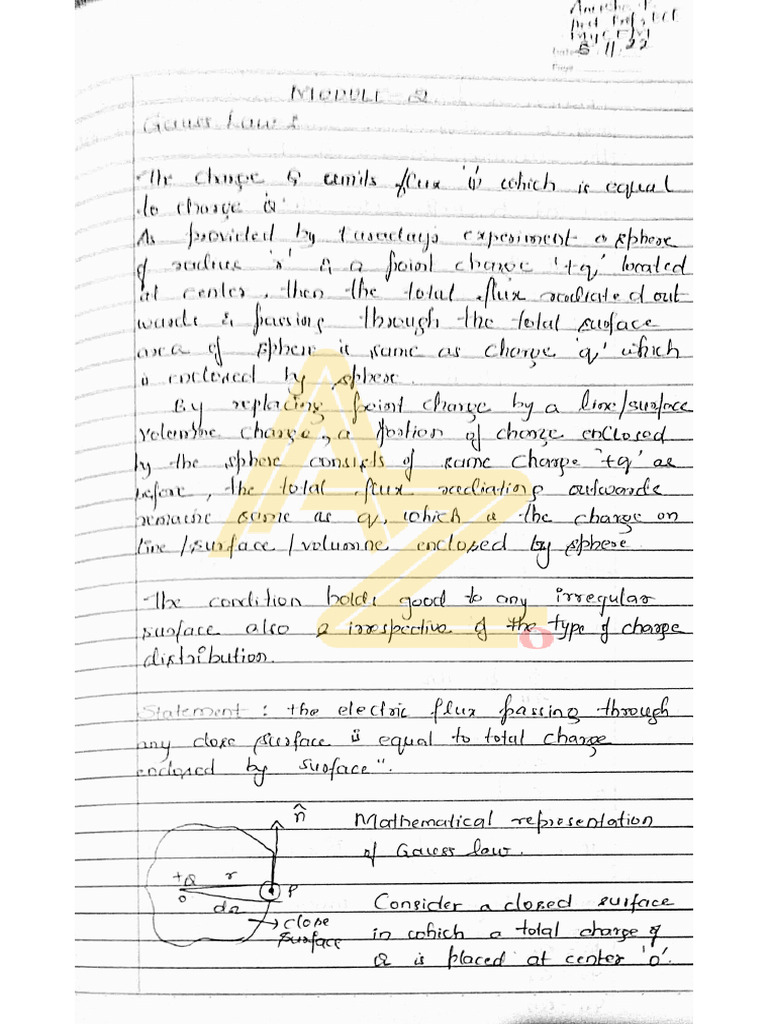 5.11.22
MODULE - 2
Gauss Law :
The charge Q emits flux 'ψ' which is equal
to charge Q.
As provided by Faraday's experiment a sphere
of radius 'r' & a point charge '+q' located
at center, then the total flux radiated out
wards & passing through the total surface
area of sphere is same as charge 'q' which
is enclosed by sphere.
By replacing point charge by a line/surface
volumne charge, a portion of charge enclosed
by the sphere consists of same charge '+q' as
before, the total flux radiating outwards
remains same as q, which is the charge on
line/surface/volumne enclosed by sphere.
The condition holds good to any irregular
surface also & irrespective of the type of charge
distribution.
Statement : the electric flux passing through
any close surface is equal to total charge
enclosed by surface".
n̂
Mathematical representation
of Gauss law.
+Q r P
O
dΩ
→ close
surface
Consider a closed surface
in which a total charge of
Q is placed at center 'O'.
AZ